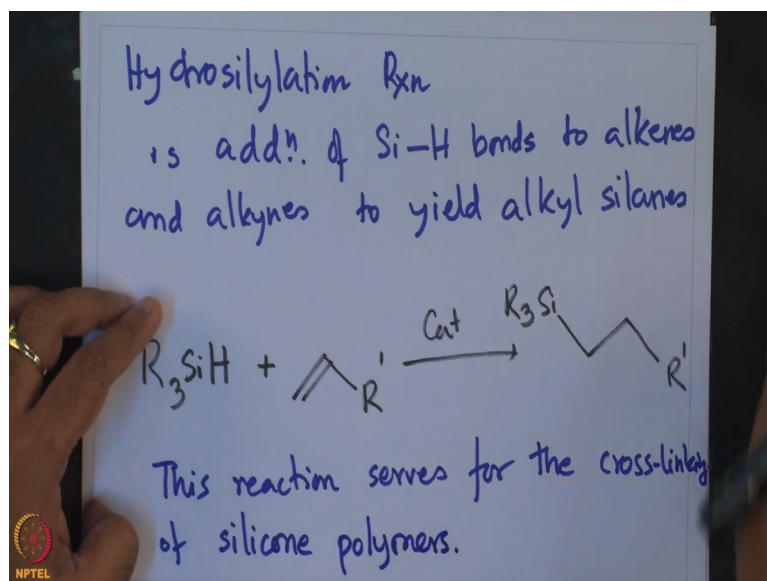 Hydrosilylation Rxn
is addn. of Si-H bonds to alkenes
and alkynes to yield alkyl silanes
R₃SiH + R' Cat R₃Si R'
This reaction serves for the cross-linking
of silicone polymers.
NPTEL